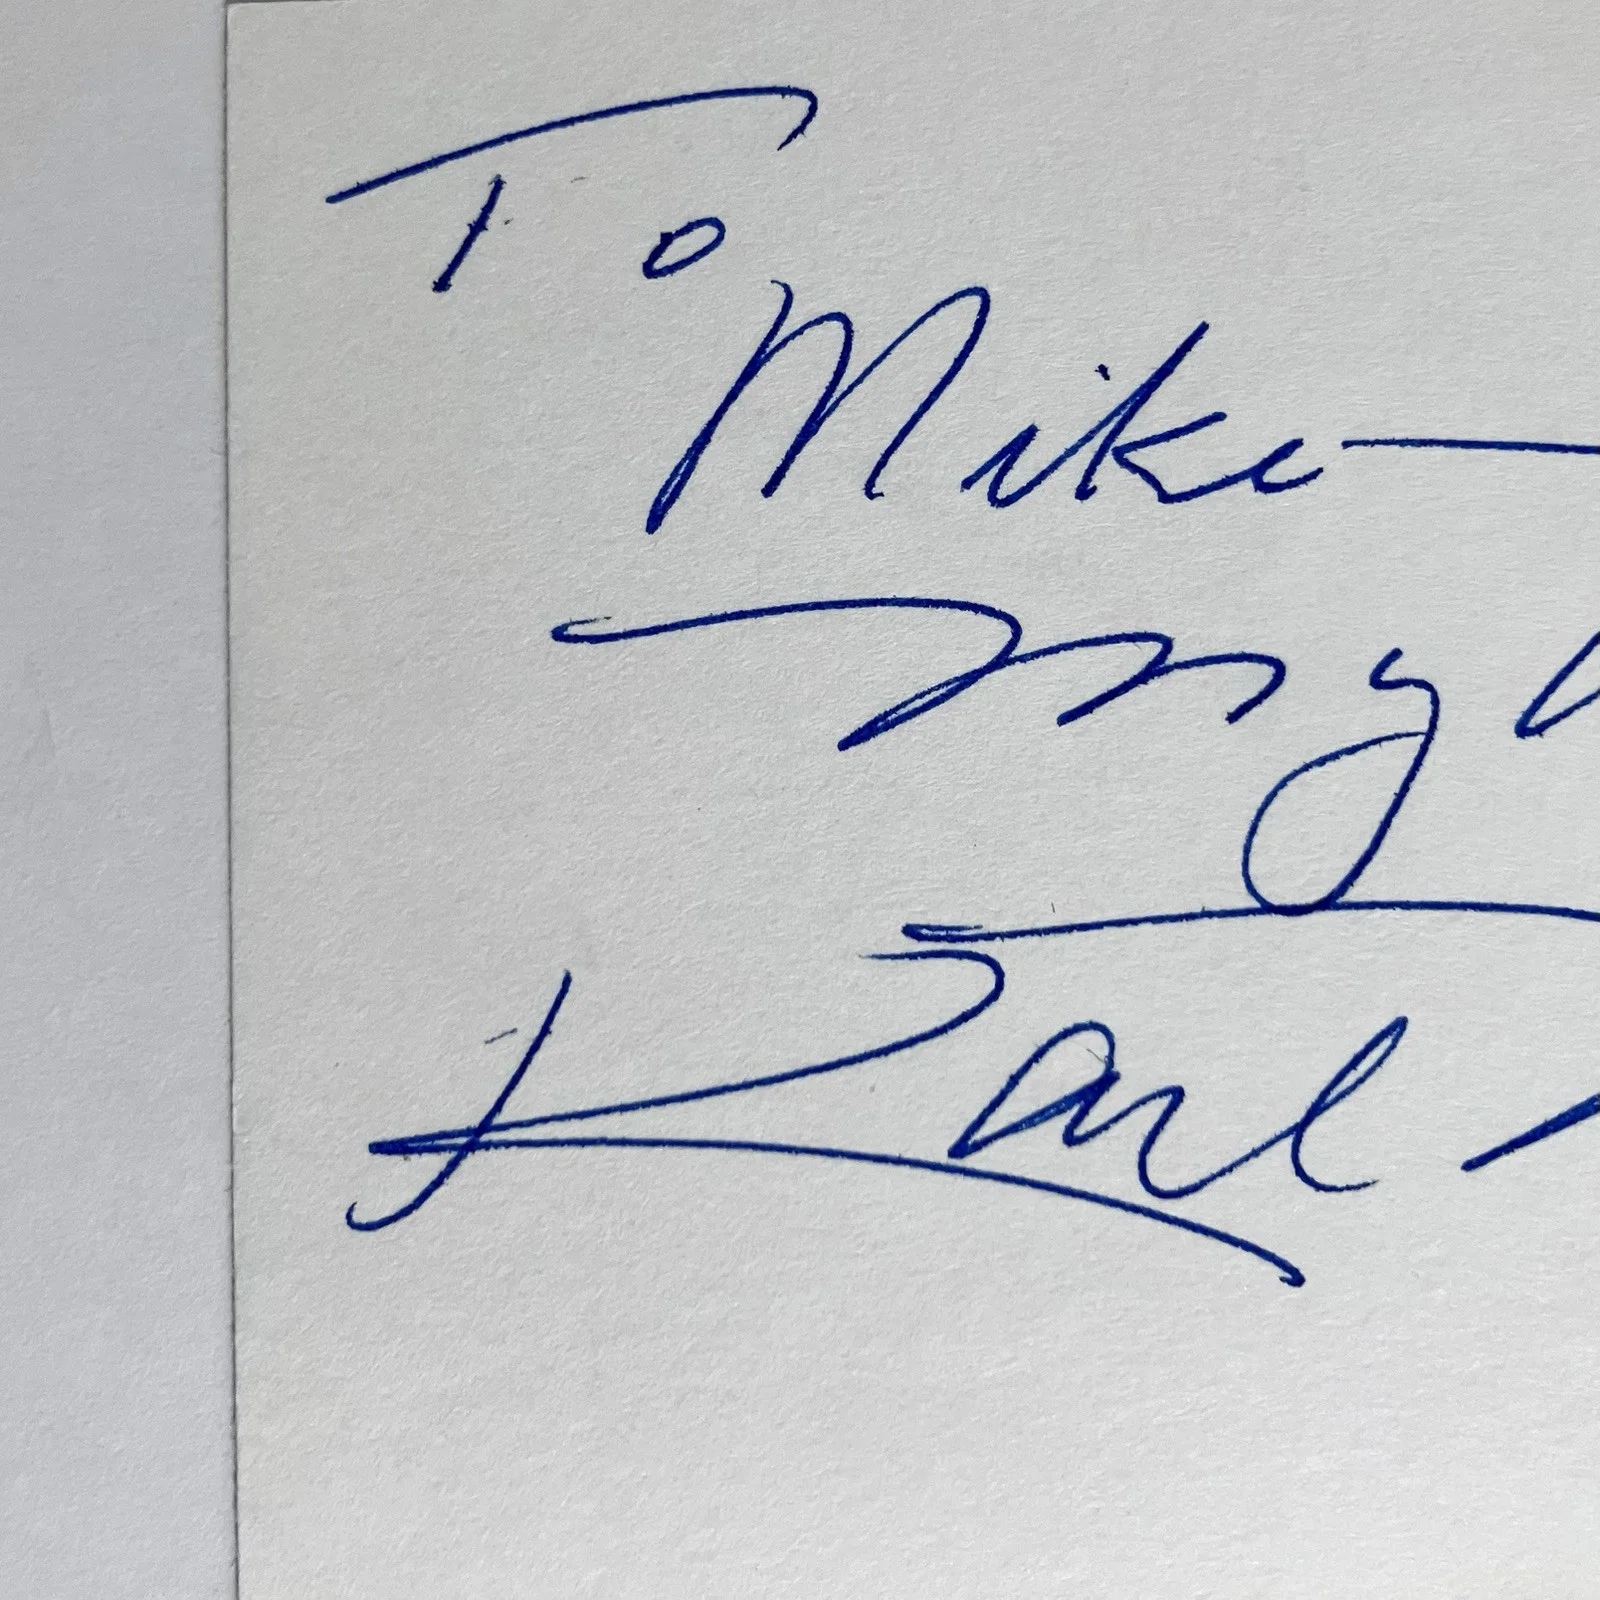 To
Mike —
My
Karl